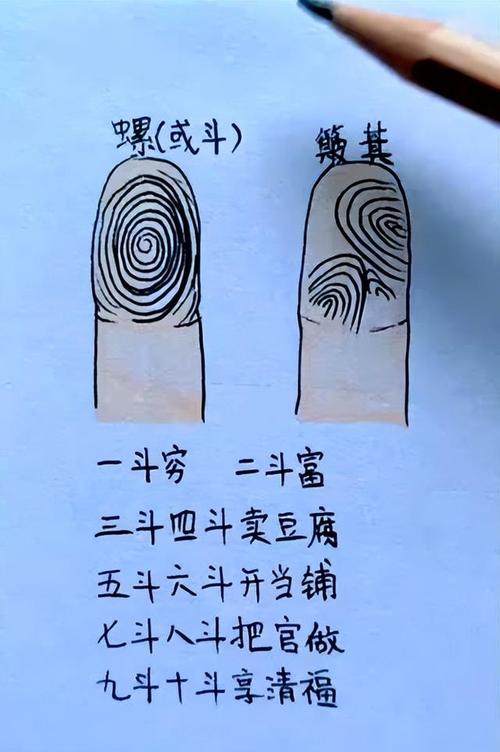 螺(或斗) 簸其
一斗穷 二斗富
三斗四斗卖豆腐
五斗六斗开当铺
七斗八斗把官做
九斗十斗享清福